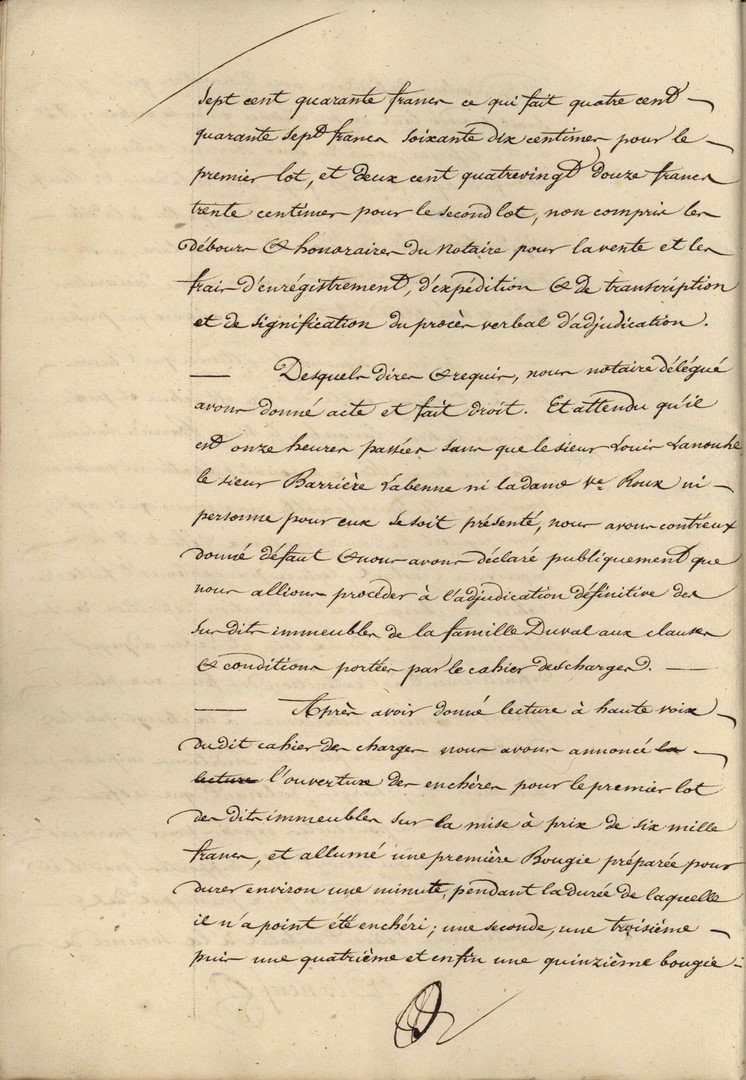 sept cent quarante francs ce qui fait quatre cent
quarante sept francs soixante dix centimes pour le
premier lot, et deux cent quatrevingt douze francs
trente centimes pour le second lot, non compris les
débours & honoraires du Notaire pour la vente et les
frais d'enrégistrement, d'expédition & de transcription
et de signification du procès verbal d'adjudication.
— Desquels dires & requis, nous notaire délégué
avons donné acte et fait droit. Et attendu qu'il
est onze heures passées sans que le sieur Louis Lanouhe
le sieur Barrière Labenne ni la dame Ve Roux ni
personne pour eux se soit présenté, nous avons contr'eux
donné défaut & nous avons déclaré publiquement que
nous allions procéder à l'adjudication définitive des
sus dits immeubles de la famille Duval aux clauses
& conditions portées par le cahier des charges. —
— Après avoir donné lecture à haute voix
du dit cahier des charges nous avons annoncé la
lecture l'ouverture des enchères pour le premier lot
des dits immeubles sur la mise à prix de six mille
francs, et allumé une première Bougie préparée pour
durer environ une minute, pendant la durée de laquelle
il n'a point été enchéri; une seconde, une troisième
puis une quatrième et enfin une quinzième bougie